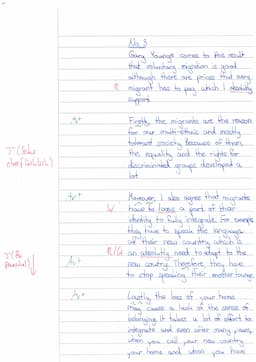 No. 3
Gary Younge comes to the result
that voluntary migration is good
although there are prices that every
R migrant has to pay which I absolutely
support.
Firstly, the migrants are the reason
for our multi-ethnic and mostly
tolerant society. Because of them
the equality and the rights for
discriminated groups developed a
lot.
Moreover, I also agree that migrants
W have to loose a part of their
identity to fully integrate. For example
they have to speak the language
of their new country which is
R/G an absolutely need to adapt to the
new country. Therefore, they have
to stop speaking their mother tongue.
Lastly the loss of your home
may cause a lack of the sense of
belonging. It takes a lot of effort to
integrate and even after many years,
when you call your new country
your home and when you have